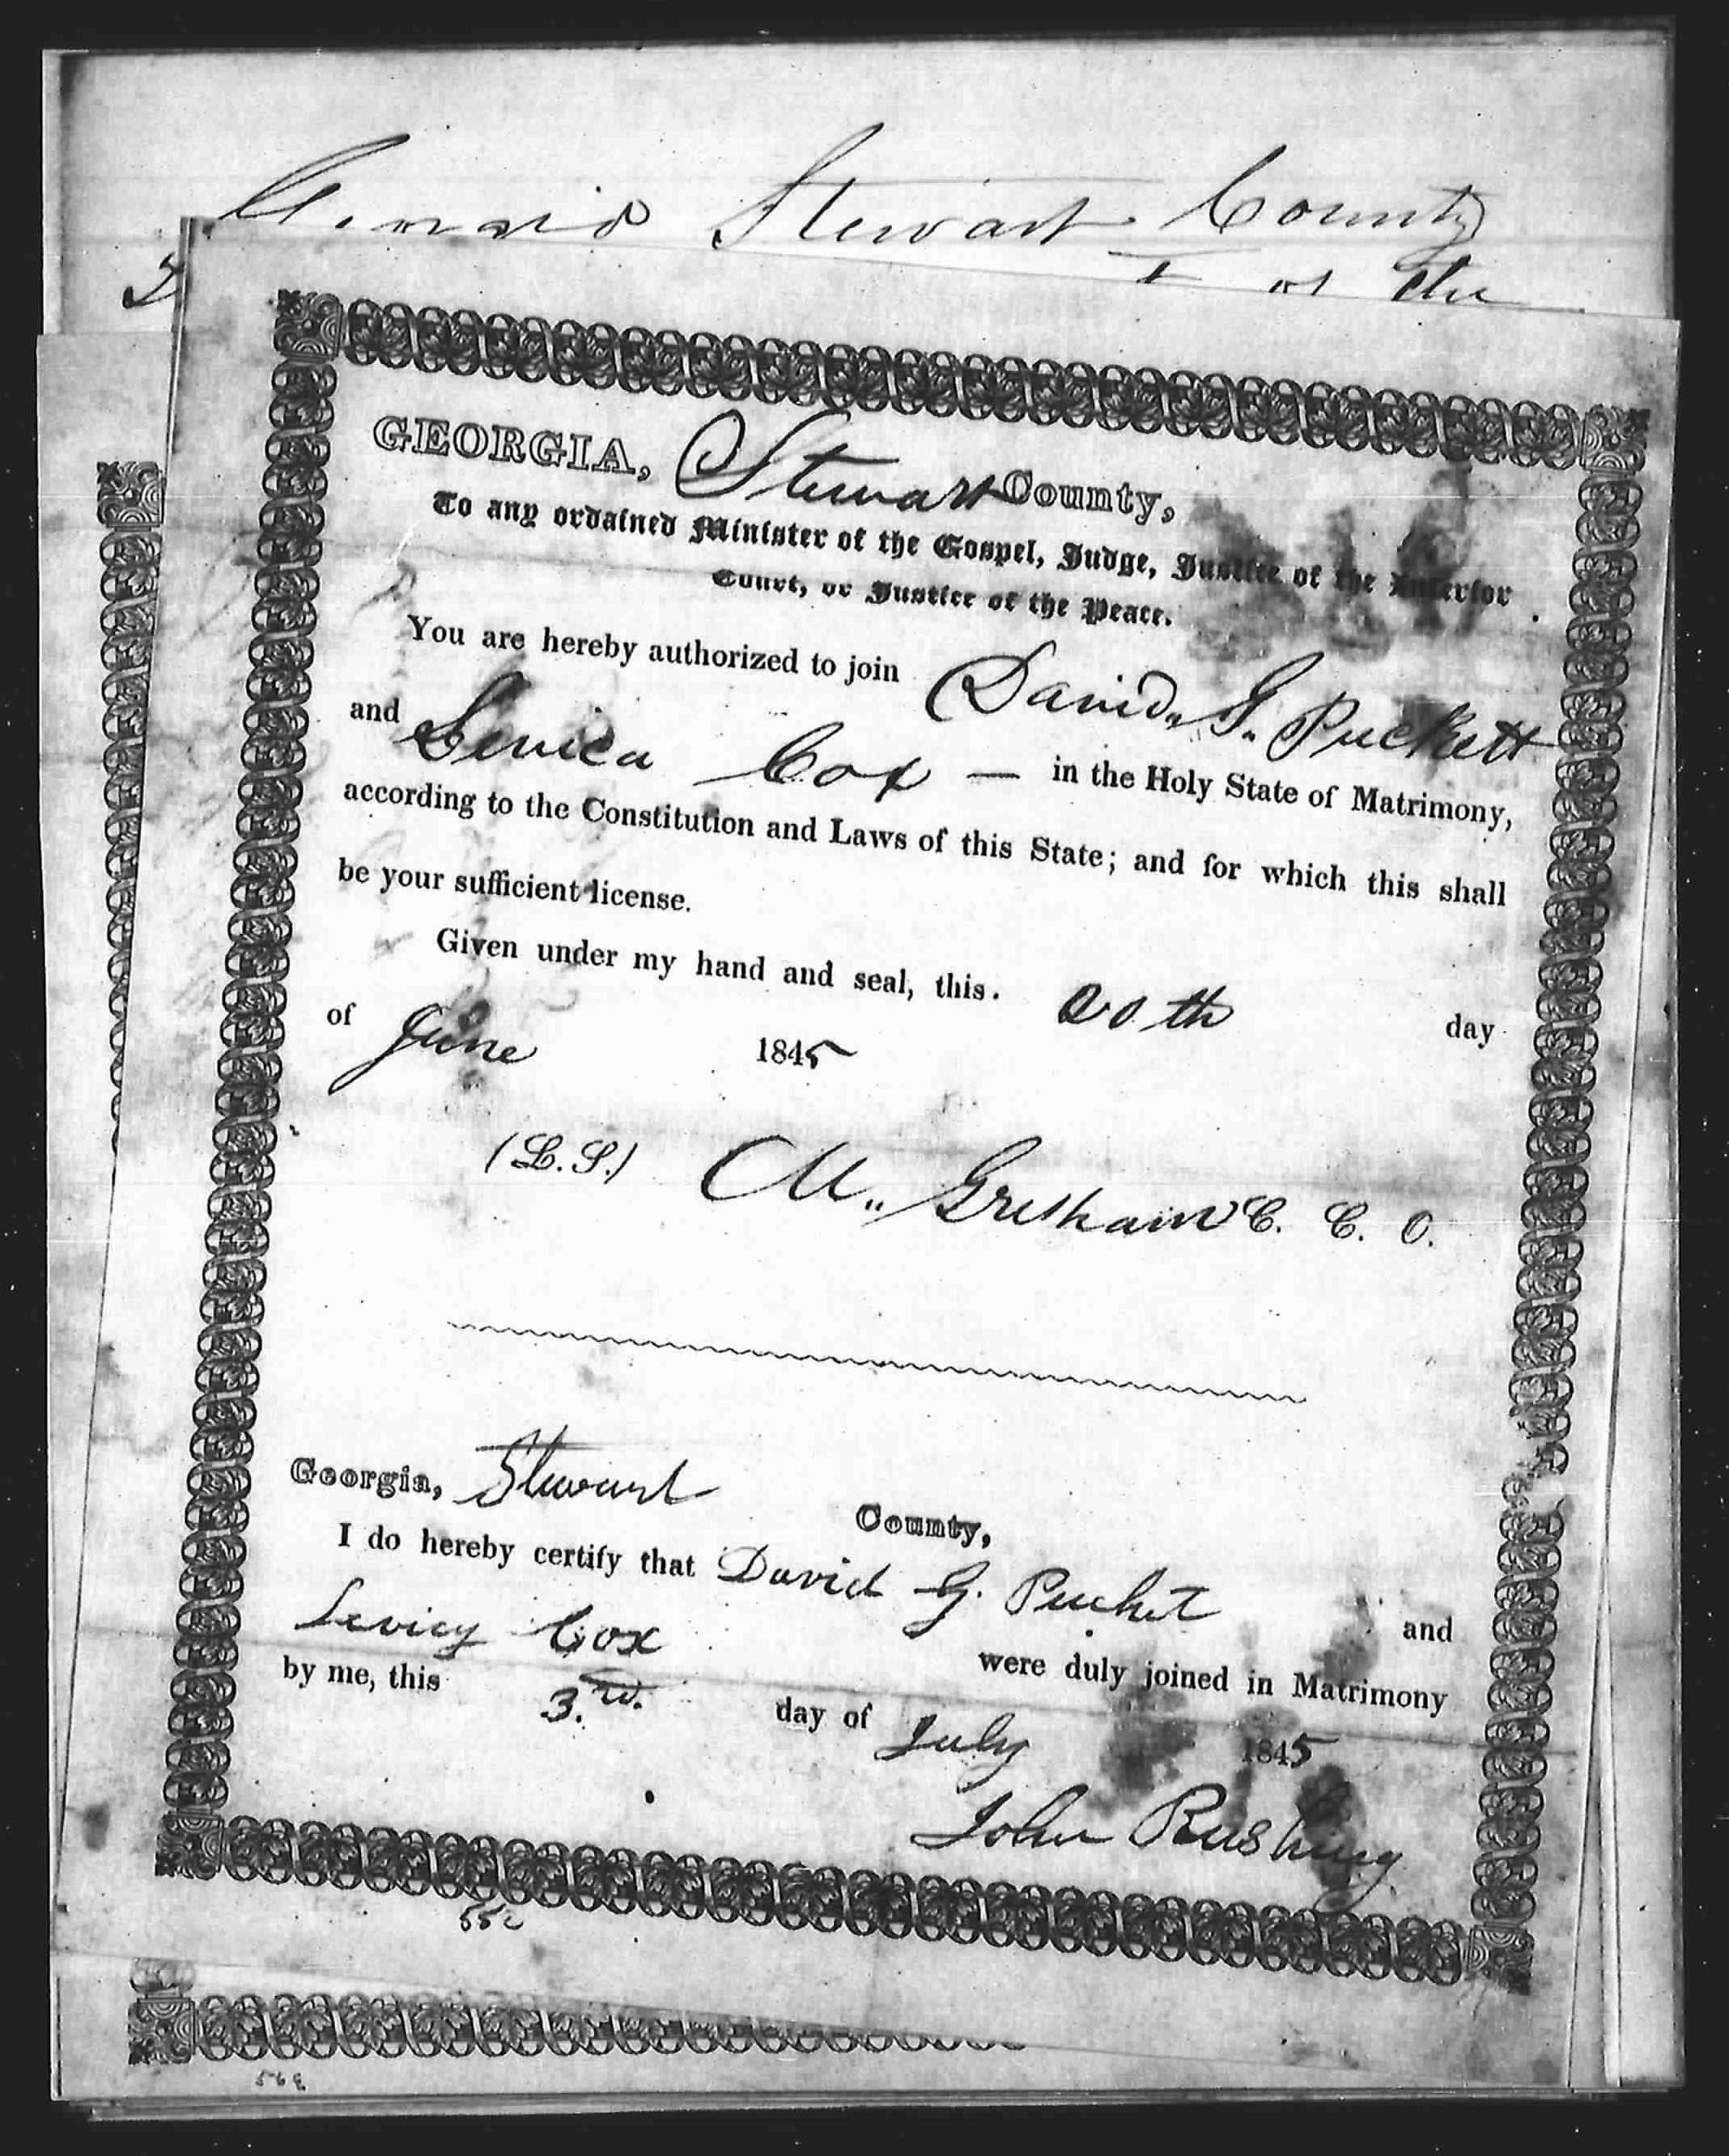 Stewart County
the
GEORGIA, Stewart County,
To any ordained Minister of the Gospel, Judge, Justice of the Inferior
Court, or Justice of the Peace.
You are hereby authorized to join David,, G,, Puckett
and Levica Cox — in the Holy State of Matrimony,
according to the Constitution and Laws of this State; and for which this shall
be your sufficient license.
Given under my hand and seal, this. 20th day
of June 1845
(L.S.) M,, Gresham C. C. O.
Georgia, Stewart County,
I do hereby certify that David G. Pucket and
Levicy Cox were duly joined in Matrimony
by me, this 3.rd. day of July 1845
John Rushing